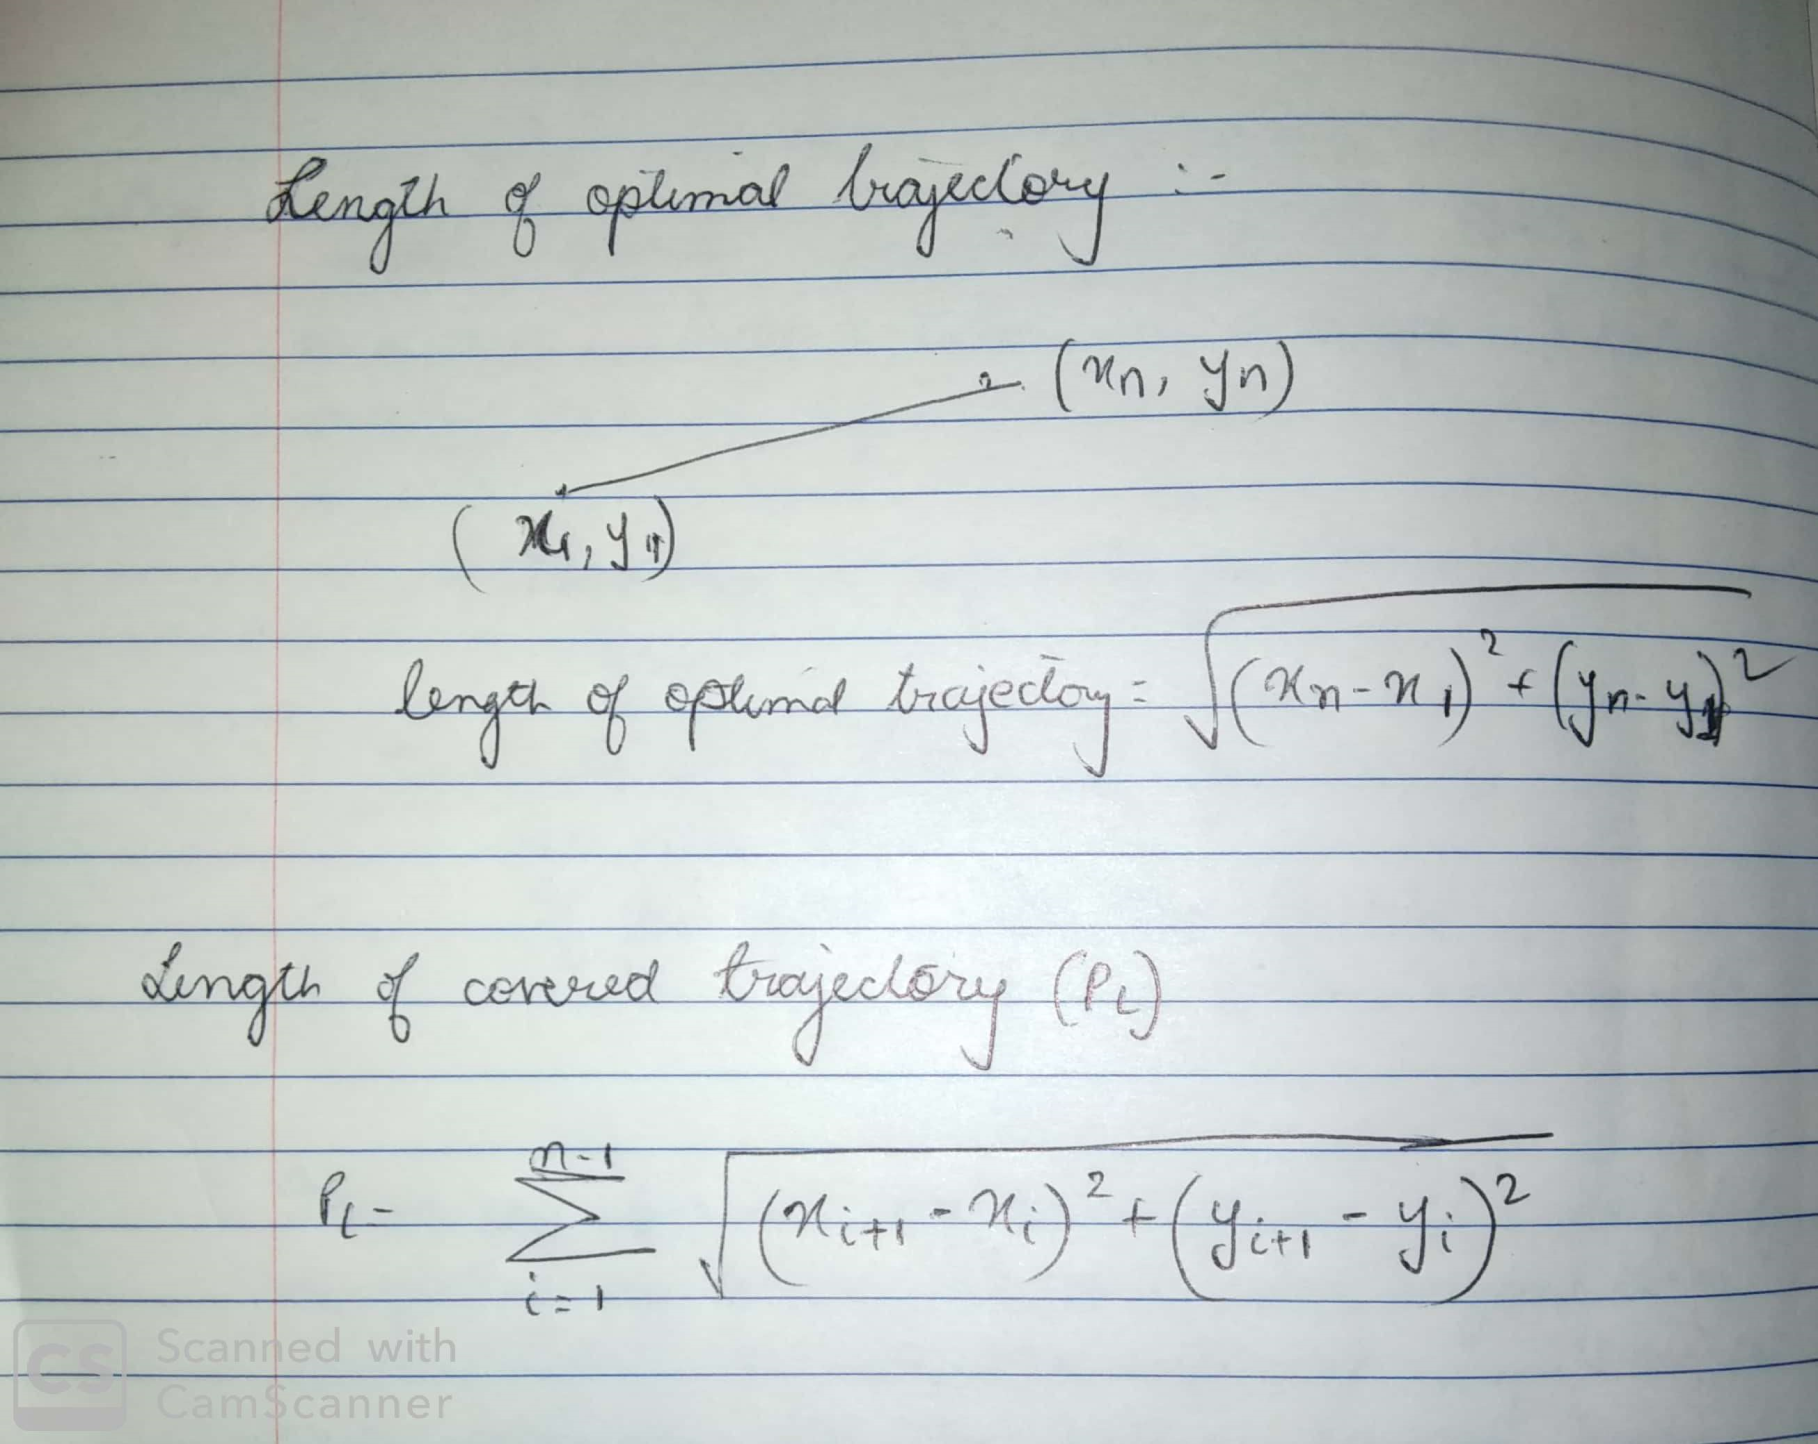 Length of optimal trajectory :-
(xn, yn)
(x1, y1)
length of optimal trajectory = √(xn - x1)² + (yn - y1)²
Length of covered trajectory (PL)
n-1
PL = Σ √(xi+1 - xi)² + (yi+1 - yi)²
i=1
CS Scanned with
CamScanner